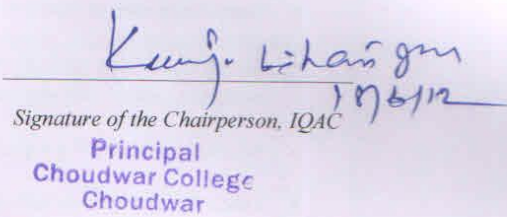 18/6/12
Signature of the Chairperson, IQAC
Principal
Choudwar College
Choudwar